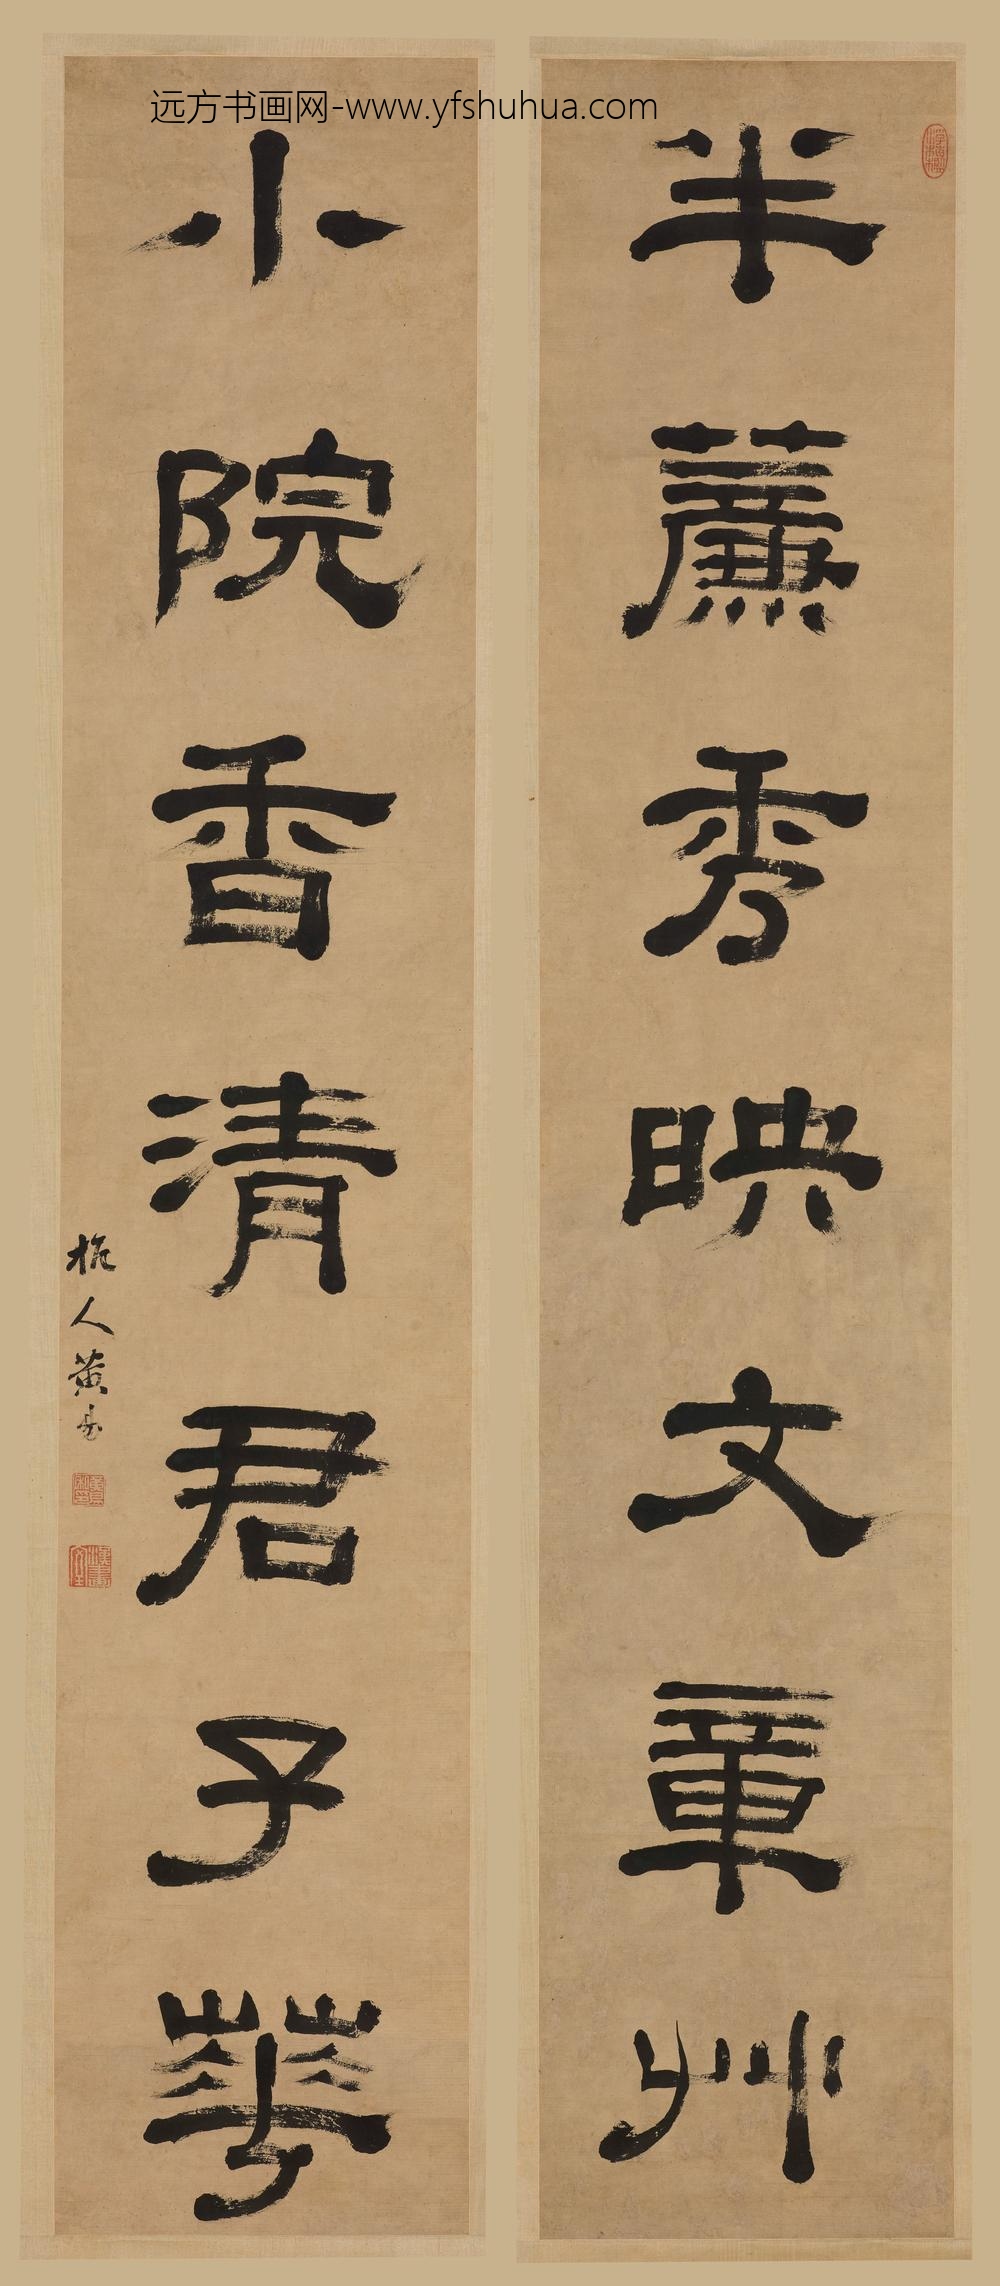 远方书画网-www.yfshuhua.com
半薕秀映文章艸
小院香清君子華
秋人黄易